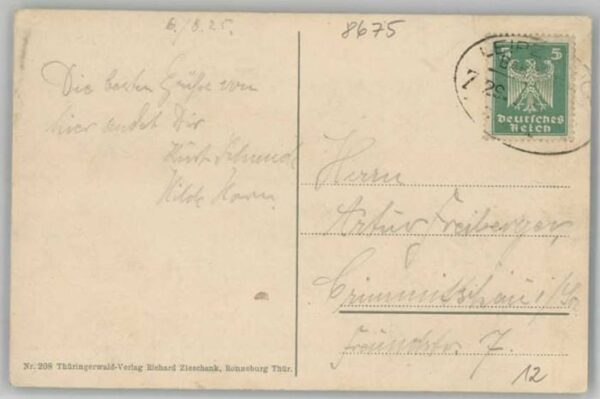 6./8.25.
8675
5 5
Deutsches
Reich
Die besten Grüße von
hier sendet Dir
Kurt
Hilde
Herrn
Artur Freiberger
Crimmitschau i/Sa
7.
12
Nr. 208 Thüringerwald-Verlag Richard Zieschank, Ronneburg Thür.